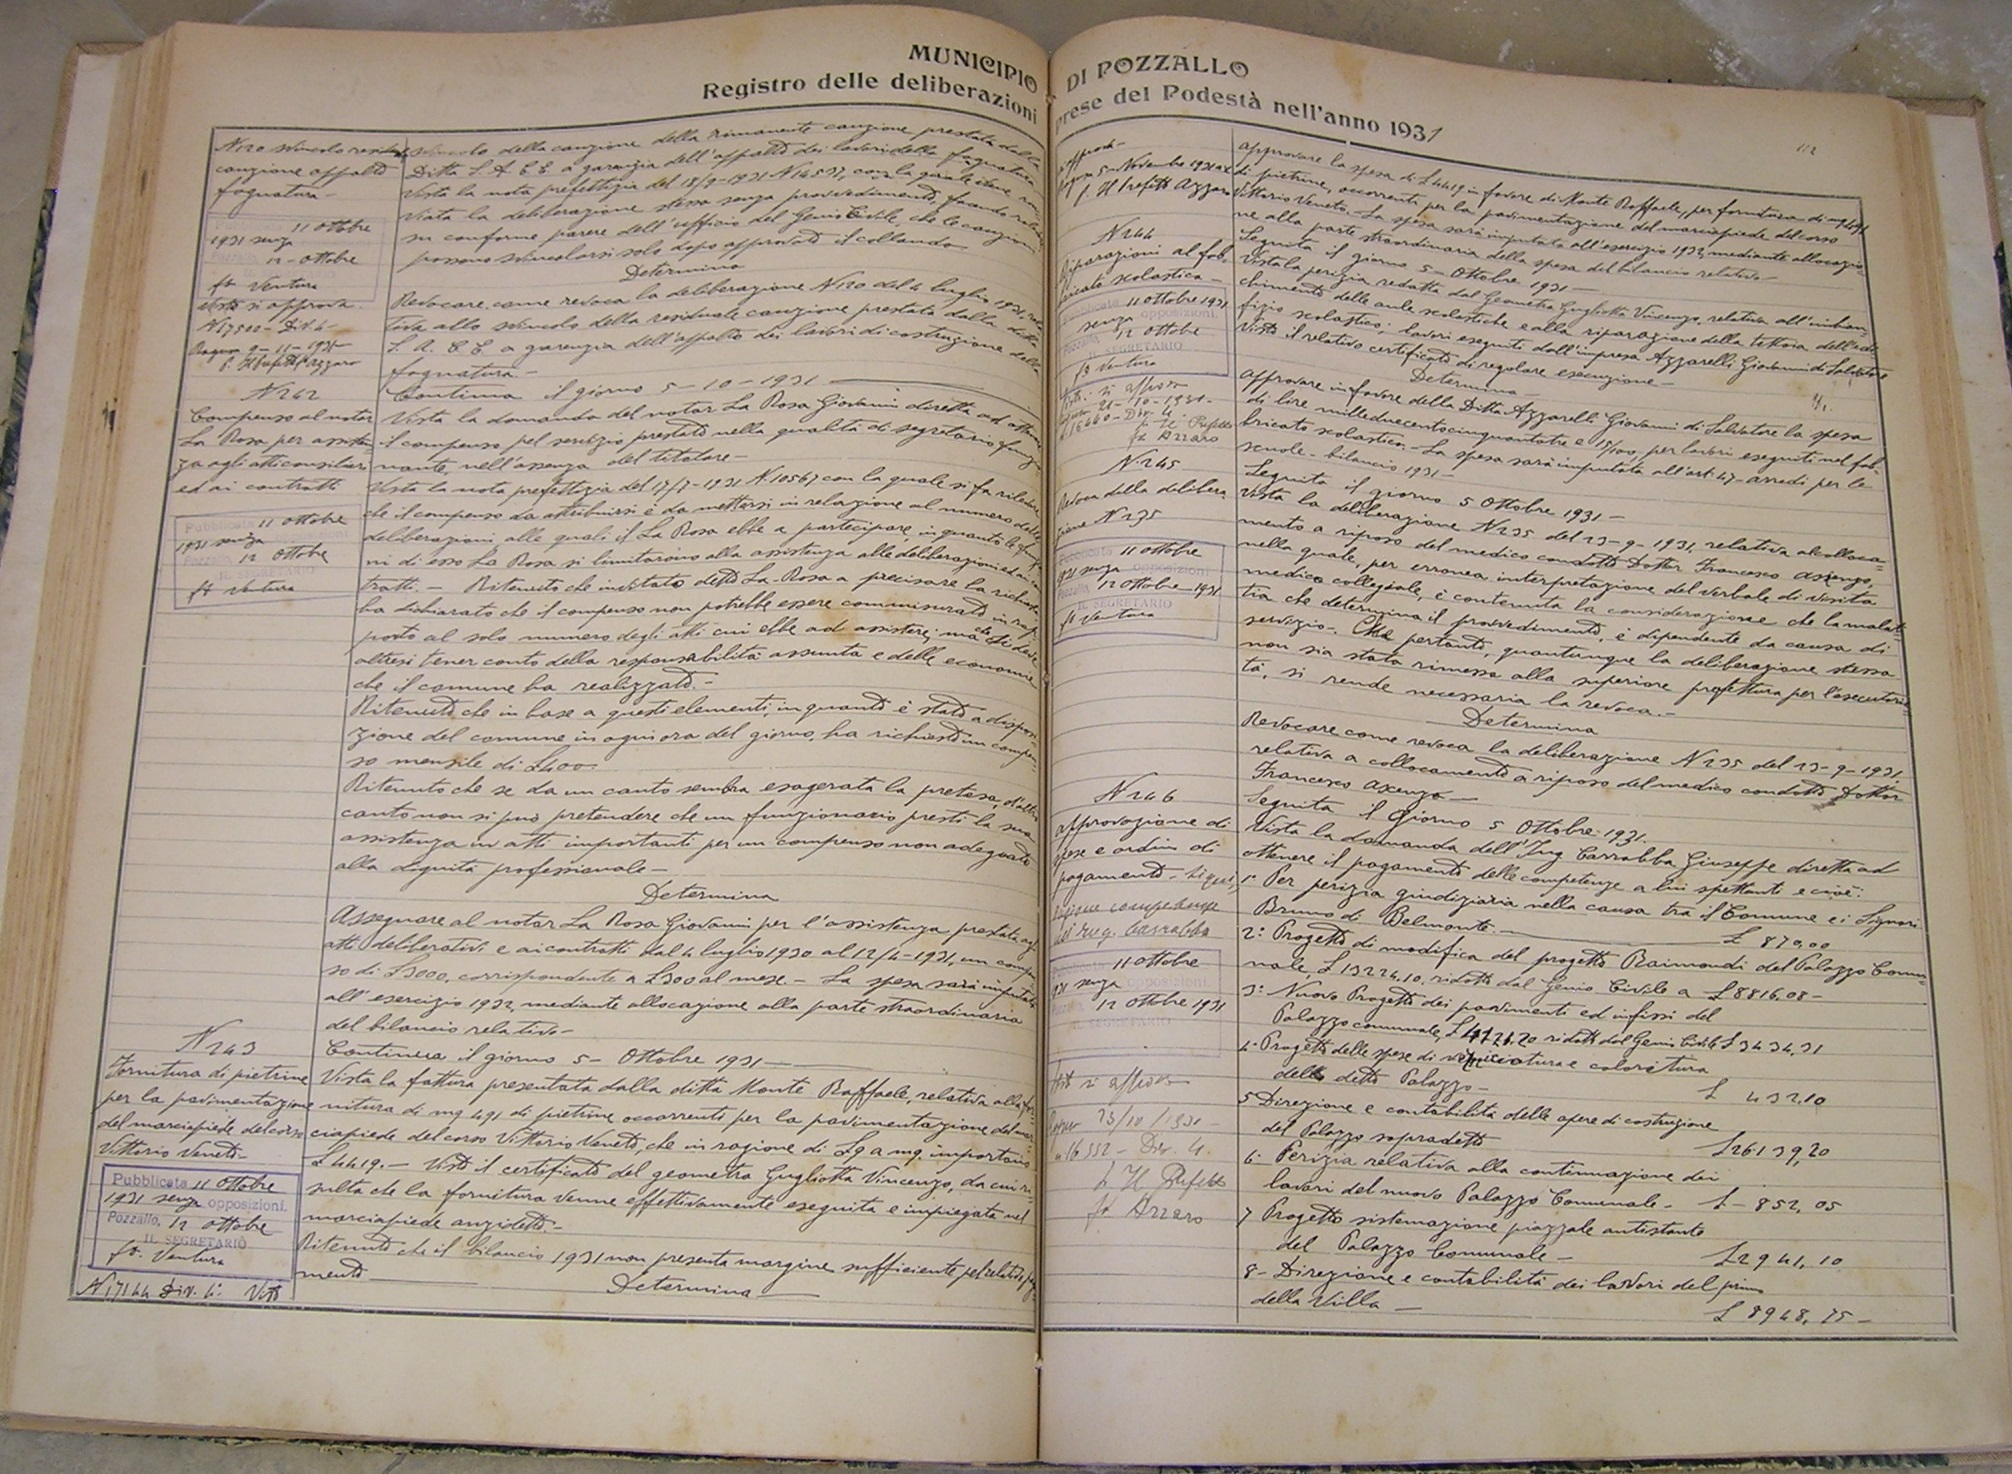 MUNICIPIO DI POZZALLO
Registro delle deliberazioni prese del Podestà nell'anno 1931
112
cauzione appalto
fognatura
11 Ottobre
1931 senza
12 - Ottobre
fto Ventura
si approva
della cauzione della rimanente cauzione prestata dalla
Ditta S. A. C. E. a garanzia dell'appalto dei lavori della fognatura
Vista la nota prefettizia del 18/9-1931 N 14531, con la quale
viata la deliberazione stessa senza provvedimento,
su conforme parere dell'ufficio del Genio Civile, che le cauzioni
possono svincolarsi solo dopo approvato il collaudo
Determina
Revocare come revoca la deliberazione N 120 del 4 luglio 1931,
tiva allo svincolo della residuale cauzione prestata dalla ditta
S. A. C. E. a garanzia dell'appalto dei lavori di costruzione della
fognatura.-
N 242
Compenso al notar
La Rosa per assisten-
za agli atti consiliari
ed ai contratti
Pubblicata 11 Ottobre
1931 senza
Pozzallo, 12 Ottobre
IL SEGRETARIO
fto Ventura
Continua il giorno 5-10-1931
Vista la domanda del notar La Rosa Giovanni diretta ad
il compenso pel servizio prestato nella qualità di segretario
nante, nell'assenza del titolare-
Vista la nota prefettizia del 17/7-1931 N. 10567 con la quale si fa rilevare
che il compenso da attribuirsi è da mettersi in relazione al numero delle
deliberazioni alle quali il La Rosa ebbe a partecipare in quanto le
ni di esso La Rosa si limitarono alla assistenza alle deliberazioni ed ai
tratti.- Ritenuto che invitato detto La Rosa a precisare la richiesta
ha dichiarato che il compenso non potrebbe essere commisurato in rap-
porto al solo numero degli atti cui ebbe ad assistere; ma che si deve
altresì tener conto della responsabilità assunta e delle economie
che il comune ha realizzato.-
Ritenuto che in base a questi elementi, in quanto è stato a disposi-
zione del comune in ogni ora del giorno, ha richiesto un compen-
so mensile di £400.
Ritenuto che se da un canto sembra esagerata la pretesa, d'altro
canto non si può pretendere che un funzionario presti la sua
assistenza in atti importanti per un compenso non adeguato
alla dignità professionale-
Determina
Assegnare al notar La Rosa Giovanni per l'assistenza prestata agli
atti deliberativi e ai contratti dal 4 luglio 1930 al 12/4-1931, un compen-
so di £3000, corrispondente a £300 al mese.- La spesa sarà imputata
all'esercizio 1932, mediante allocazione alla parte straordinaria
del bilancio relativo-
N 243
Fornitura di pietrine
per la pavimentazione
del marciapiede del corso
Vittorio Veneto-
Pubblicata 11 Ottobre
1931 senza opposizioni.
Pozzallo, 12 Ottobre
IL SEGRETARIO
fto. Ventura
N 17144 Div. 4ª Visto
Continua il giorno 5- Ottobre 1931-
Vista la fattura presentata dalla ditta Monte Raffaele, relativa alla for-
nitura di mq 491 di pietrine occorrenti per la pavimentazione del mar-
ciapiede del corso Vittorio Veneto, che in ragione di £9 a mq. importano
£4419.- Visto il certificato del geometra Gugliotta Vincenzo, da cui ri-
sulta che la fornitura venne effettivamente eseguita e impiegata nel
marciapiede anzidetto.-
Ritenuto che il bilancio 1931 non presenta margine sufficiente pel relativo paga-
mento
Determina-
Ragusa 5- Novembre 1931
f. Il Prefetto Azzaro
approvare la spesa di £4419 in favore di Monte Raffaele, per fornitura di mq 491
di pietrine, occorrenti per la pavimentazione del marciapiede del corso
Vittorio Veneto.- La spesa sarà imputata all'esercizio 1932, mediante allocazio-
ne alla parte straordinaria della spesa del bilancio relativo-
N 244
Riparazioni al fab-
bricato scolastico-
11 Ottobre 1931
senza opposizioni.
Pozzallo, 12 Ottobre
IL SEGRETARIO
fto Ventura
21-10-1931-
16660- Div. 4
f. Il Prefetto
fto Azzaro
Seguita il giorno 5- Ottobre 1931-
Vista la perizia redatta dal Geometra Gugliotta Vincenzo, relativa all'imbian-
chimento delle aule scolastiche e alla riparazione della tettoia dell'edi-
fizio scolastico: lavori eseguiti dall'impresa Azzarelli Giovanni di Salvatore
Visto il relativo certificato di regolare esecuzione-
Determina
approvare in favore della Ditta Azzarelli Giovanni di Salvatore la spesa
di lire milleduecentocinquantatre e 15/100, per lavori eseguiti nel fab-
bricato scolastico.- La spesa sarà imputata all'art. 47- arredi per le
scuole- bilancio 1931-
N. 245
Revoca della delibera-
zione N 235
Pubblicata 11 Ottobre
1931 senza opposizioni
Pozzallo, 12 Ottobre-1931
IL SEGRETARIO
fto Ventura
Seguita il giorno 5 Ottobre 1931-
Vista la deliberazione N 235 del 23-9-1931, relativa al colloca=
mento a riposo del medico condotto Dottor Francesco
nella quale, per erronea interpretazione del verbale di visita
medica collegiale, è contenuta la considerazione che la malat-
tia che determina il provvedimento, è dipendente da causa di
servizio-. Che pertanto, quantunque la deliberazione stessa
non sia stata rimessa alla superiore prefettura per l'esecutorie-
tà, si rende necessaria la revoca.-
Determina
Revocare come revoca la deliberazione N 235 del 23-9-1931
relativa a collocamento a riposo del medico condotto Dottor
Francesco
N 246
approvazione di
spese e ordine di
pagamento- Liqui-
dazione competenze
all'Ing. Carrabba
11 Ottobre
1931 senza opposizioni.
12 Ottobre 1931
IL SEGRETARIO
Visto si approva
Ragusa 23/10/1931-
n. 16552- Div. 4.
f. Il Prefetto
fto Azzaro
Seguita il giorno 5 Ottobre 1931.
Vista la domanda dell'Ing Carrabba Giuseppe diretta ad
ottenere il pagamento delle competenze a lui spettanti e cioè:
1º Per perizia giudiziaria nella causa tra il Comune e i Signori
Bruno di Belmonte. £ 870,00
2º Progetto di modifica del progetto Raimondi del Palazzo Comu-
nale, £ 13224,10, ridotto dal Genio Civile a £8816,08-
3º Nuovo Progetto dei pavimenti ed infissi del
Palazzo comunale, ridotto dal Genio Civile £ 3434,31
4º Progetto delle spese di verniciatura e coloritura
dello detto Palazzo- £ 432,10
5 Direzione e contabilità delle opere di costruzione
del Palazzo sopradetto £26139,20
6- Perizia relativa alla continuazione dei
lavori del nuovo Palazzo Comunale- £- 852,05
7 Progetto sistemazione piazzale antistante
del Palazzo Comunale- £2941,10
8- Direzione e contabilità dei lavori del primo
della Villa- £ 8948,75-